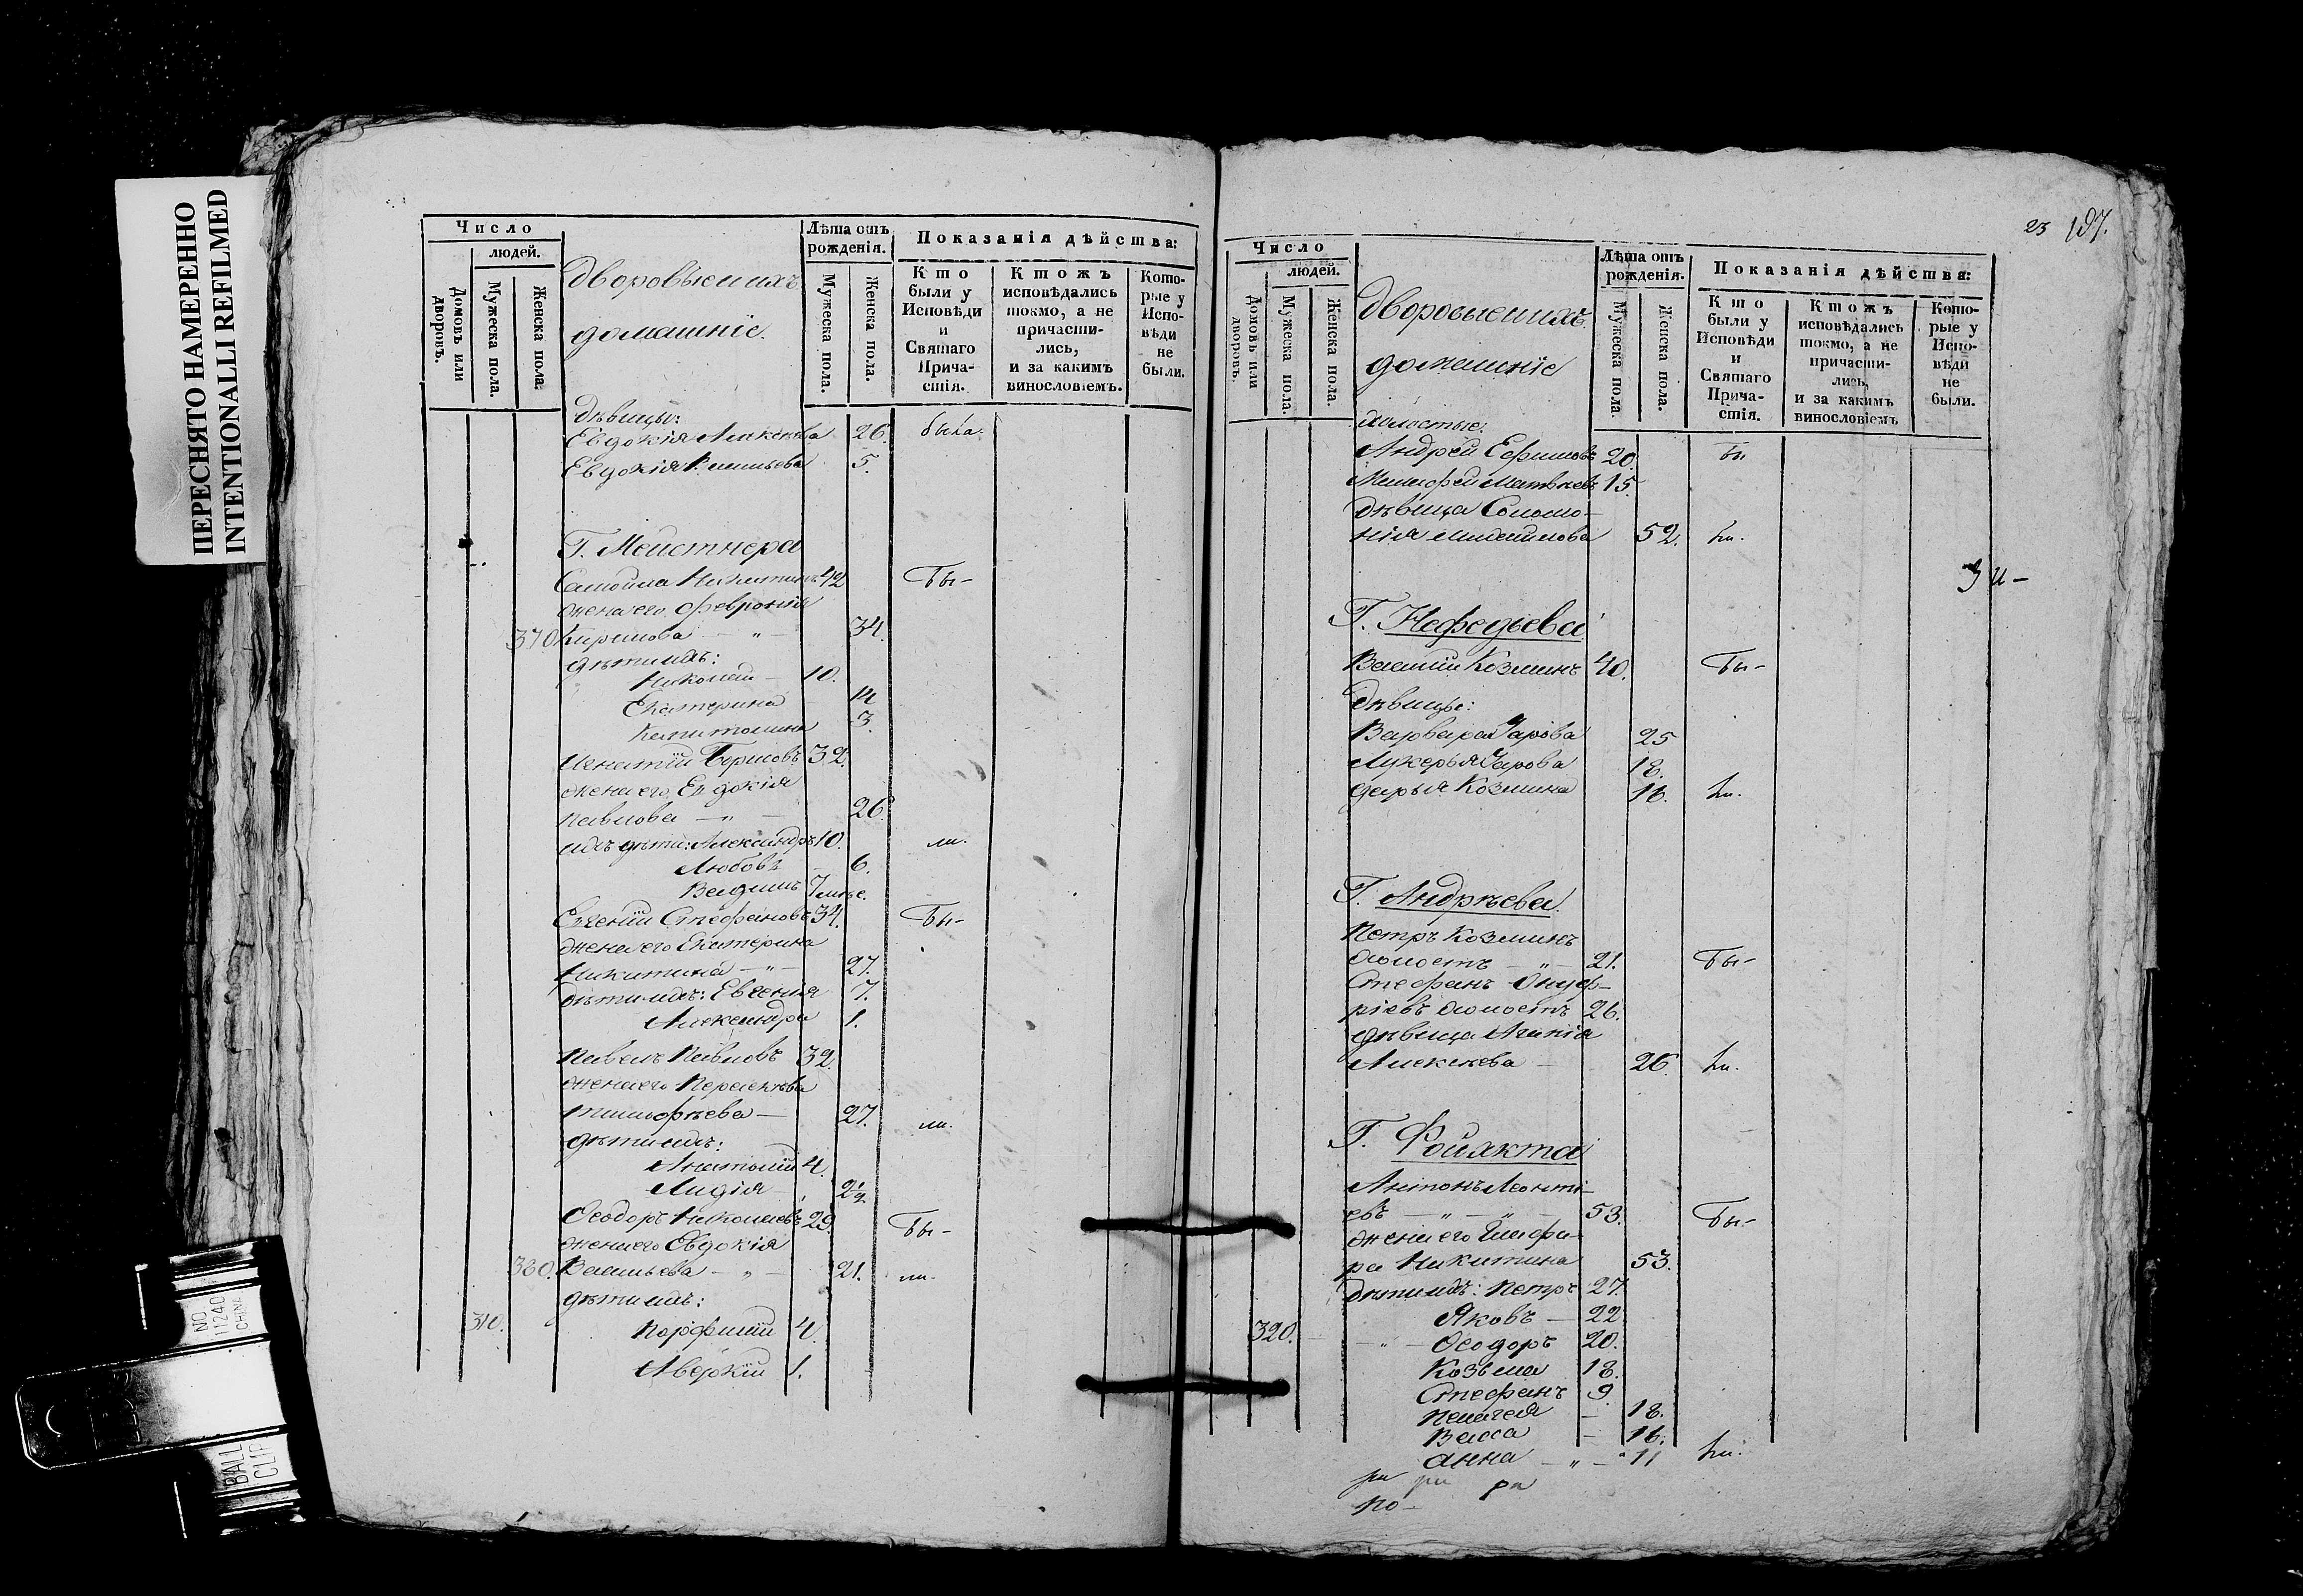 ПЕРЕСНЯТО НАМЕРЕННО
INTENTIONALLI REFILMED
Число
людей.
Домовъ или дворовъ.
Мужеска пола.
Женска пола.
Дворовые ихъ
домашніе.
Лѣта отъ
рожденія.
Мужеска пола.
Женска пола.
Показанія дѣйства:
Кто
были у
Исповѣди
и
Святаго
Прича-
стія.
Ктожъ
исповѣдались
токмо, а не
причасти-
лись,
и за какимъ
винословіемъ.
Кото-
рые у
Испо-
вѣди
не
были.
Дѣвицы:
Евдокія Алексѣева 26. была.
Евдокія Васильева 5.
Г. Мейстнера
Самойла Никитинъ 42 Бы-
жена его Февронія
370 Кирилова — „ — 34.
дѣти ихъ:
Николай — 10.
Екатерина 14
Капитолина 3.
Игнатій Борисовъ 32.
жена его Евдокія
Павлова — „ — 26.
ихъ дѣти: Александръ 10. ли.
Любовь 6.
Вадимъ 7 мѣс.
Евгеній Стефановъ 34. Бы-
жена его Екатерина
Никитина — „ — 27.
дѣти ихъ: Евгенія 7.
Александра 1.
Павелъ Павловъ 32.
жена его Параскева
Тимофѣева — 27. ли.
дѣти ихъ:
Анатолій 4.
Лидія 2 1/2
Ѳеодоръ Николаевъ 29. Бы-
жена его Евдокія
380. Васильева — „ — 21. ли.
дѣти ихъ:
310. Порфирій 4.
Аверкій 1.
23 197.
Число
людей.
Домовъ или дворовъ.
Мужеска пола.
Женска пола.
Дворовые ихъ
домашніе
Лѣта отъ
рожденія.
Мужеска пола.
Женска пола.
Показанія дѣйства:
Кто
были у
Исповѣди
и
Святаго
Прича-
стія.
Ктожъ
исповѣдались
токмо, а не
причасти-
лись,
и за какимъ
винословіемъ
Кото-
рые у
Испо-
вѣди
не
были.
холостые:
Андрей Ефимовъ 20. Бы
Тимофей Матвѣевъ 15.
дѣвица Соломо-
нія 52. ли.
Г. Нефедьева
Василій Козминъ 40. Бы-
Дѣвицы:
Варвара Уарова 25
Лукерья Уарова 18.
Дарья Козмина 16. ли.
Г. Андрѣева.
Петръ Козминъ
холостъ — „ — 21. Бы-
Стефанъ Онуф-
ріевъ холостъ 26.
дѣвица Агапія
Алексѣева — 26. ли.
Г. Фойхта
Антонъ Леонті-
евъ — „ — „ — 53. Бы-
жена его Глафи-
ра Никитина 53.
дѣти ихъ: Петръ 27.
Яковъ — 22
320. — „ — Ѳеодоръ 20.
Козьма 18.
Стефанъ 9.
Пелагея — 18.
Васса — 16.
Анна — „ — 11 ли.
ра ра ра
по-
NO
11240
CHINA
BALL
CLIP